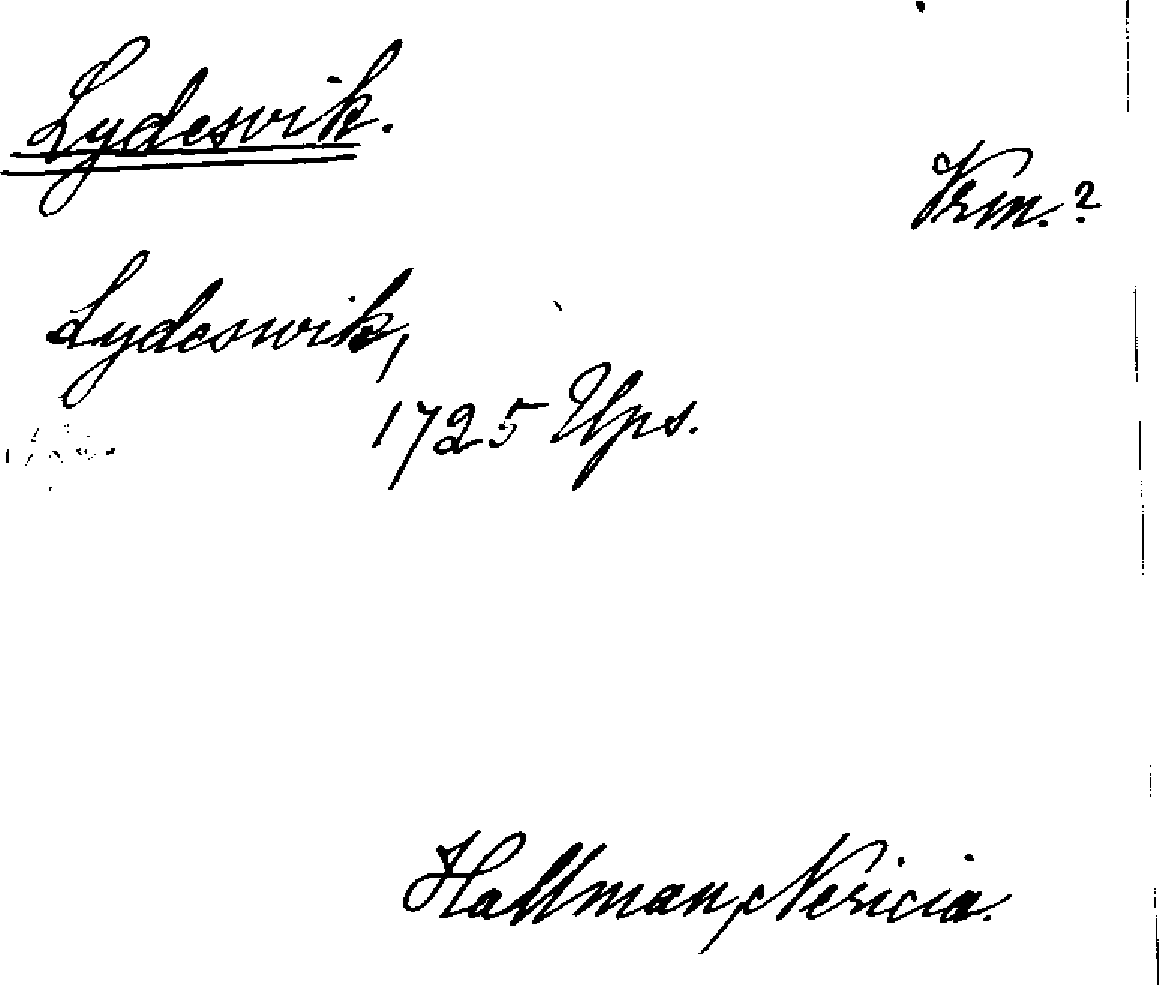 Lydesvik.
Vrm.?
Lydeswik,
1725 Ups.
Hallman, Nericia.